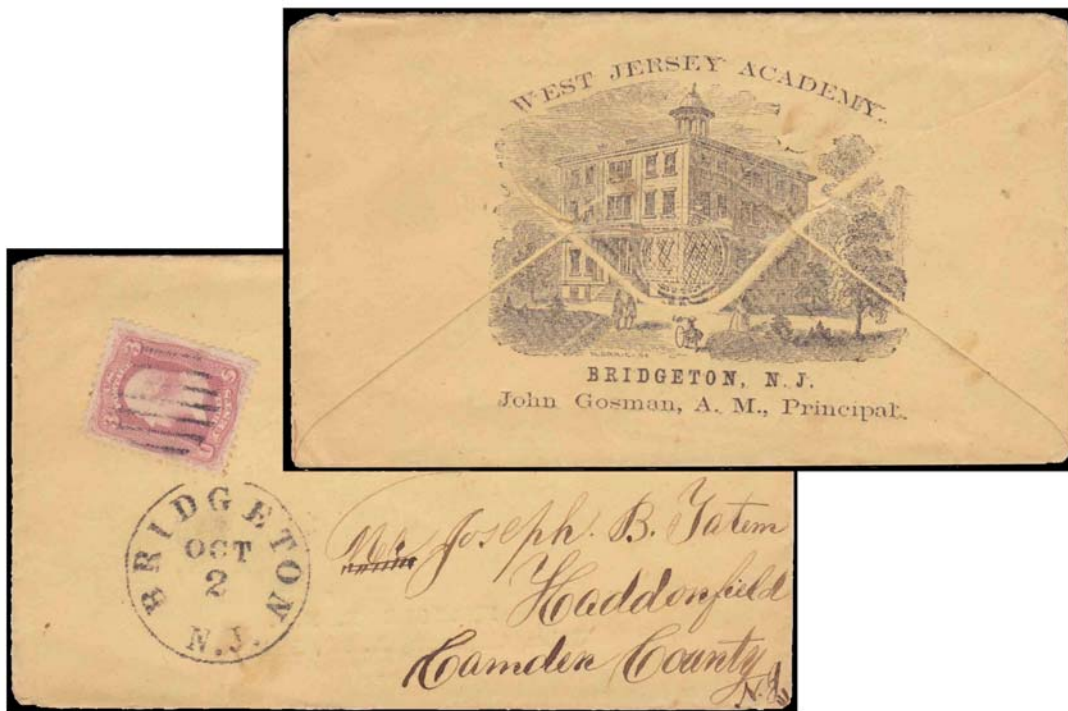 WEST JERSEY ACADEMY.
BRIDGETON, N. J.
John Gosman, A. M., Principal.
BRIDGETON
OCT
2
N.J.
Mr. Joseph. B. Tatem
Haddonfield
Camden County
N.J.